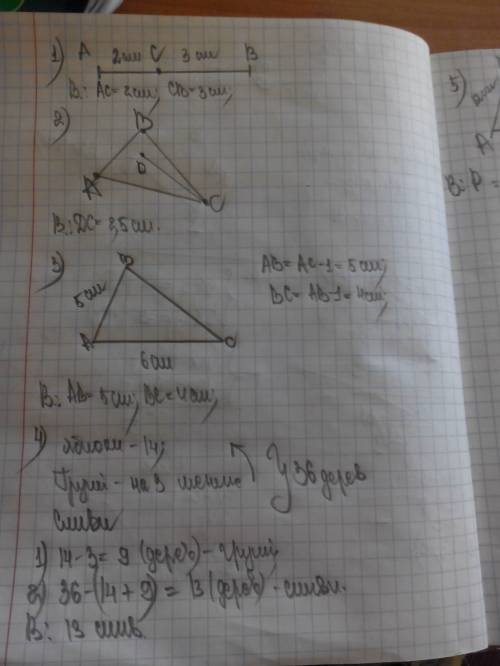 1) A 2 см C 3 см B
В: AC = 2 см; CB = 3 см;
2) B
D
A C
В: DC = 3,5 см.
3) B
AB = AC - 1 = 5 см;
5 см
BC = AB - 1 = 4 см;
A C
6 см
В: AB = 5 см; BC = 4 см;
4) Яблоки - 14;
Груші - на 3 менше У 36 дерев
сливи
1) 14 - 3 = 9 (дерев) - груші
2) 36 - (14 + 9) = 13 (дерев) - сливи.
В: 13 слив
5)
A
В: P =